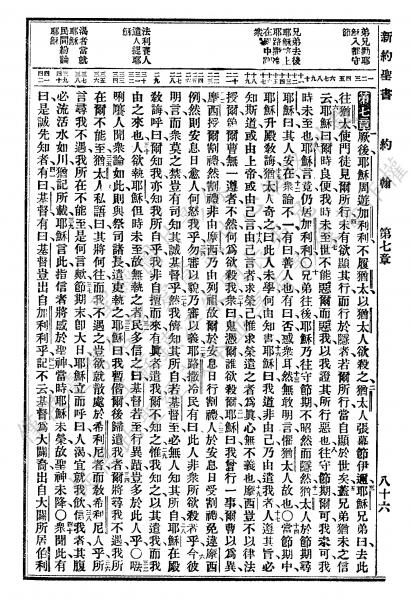 新約聖書 約翰 第七章 八十六
弟兄勸耶穌入都守節
兄弟去後耶穌乃往在殿中訓衆
法利賽人遣人捉耶穌
渴者當就耶穌
民間紛論耶穌
第七章 厥後耶穌周遊加利利不履猶太以猶太人欲殺之猶太人張幕節伊邇耶穌兄弟曰去此
往猶太使門徒見爾所行未有欲顯其行而行於隱者若爾所行當自顯於世矣蓋兄弟猶未之信
云耶穌曰爾時良便我時未至世不能惡爾而惡我以我證其所行惡也往守節期爾可我未可我
時未至也耶穌言竟仍居加利利○兄弟往後耶穌乃往守節期不昭然而隱然猶太人於節期尋
耶穌曰其人安在衆論不一有曰善人也有曰否惑衆耳然無敢明言懼猶太人故也○當節期中
耶穌升殿敎誨猶太人奇之曰此人未學何由知書耶穌曰我道非由己乃由遣我者人遵其旨必
知斯道或由上帝或由己言由己言者求榮己惟求榮遣之者爲眞心無不義也摩西豈不以律法
授爾爾曹無一遵者不然何爲欲殺我衆曰爾憑鬼誰欲殺爾耶穌曰我曾行一事爾曹以爲異
摩西授爾割禮割禮非由摩西乃由列祖故爾於安息日行割禮人於安息日受割禮免違摩西
例然則安息日愈人何怒我乎勿審以貌乃審以義耶路撒冷民有曰此人非衆所欲殺者乎今彼
明言而衆莫之禁豈有司知其誠基督乎然我儕知其所自若基督至必無人知其所自耶穌在殿
敎誨呼曰爾知我亦知我所自乎我非自擅而來有眞者遣我爾不知之惟我知之以其遣我而我
由之來也人欲執耶穌但時未至故無執之者民多信之曰基督若至行異蹟豈多於此人乎○
人聞衆論如此則與祭司諸長遣吏執之耶穌曰我暫偕爾後歸遣我者爾將尋我不遇我所
在爾不能至猶太人私語曰其將何往而我不遇之豈欲就散處於希利尼者而敎希利尼人乎所
言尋我不遇我所在不能至是何言歟節期末即大日耶穌立而呼曰人渴宜就我飮信我者其腹
必流活水如川猶記所載耶穌言此指信者將感於聖神當時耶穌未榮故聖神未降○衆聞此有
曰是誠先知者有曰是基督有曰基督豈出自加利利乎記不云基督爲大闢裔出自大闢所居伯利